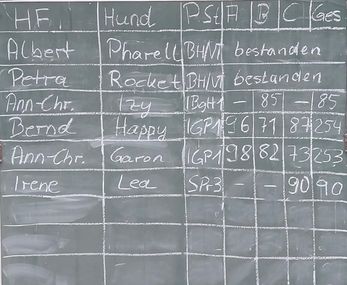 HF Hund PSt A B C Ges
Albert Pharell BH/VT bestanden
Petra Rocket BH/VT bestanden
Ann-Chr. Izy IBgH1 - 85 - 85
Bernd Happy IGP1 96 71 87 254
Ann-Chr. Garon IGP1 98 82 73 253
Irene Lea SPr3 - - 90 90